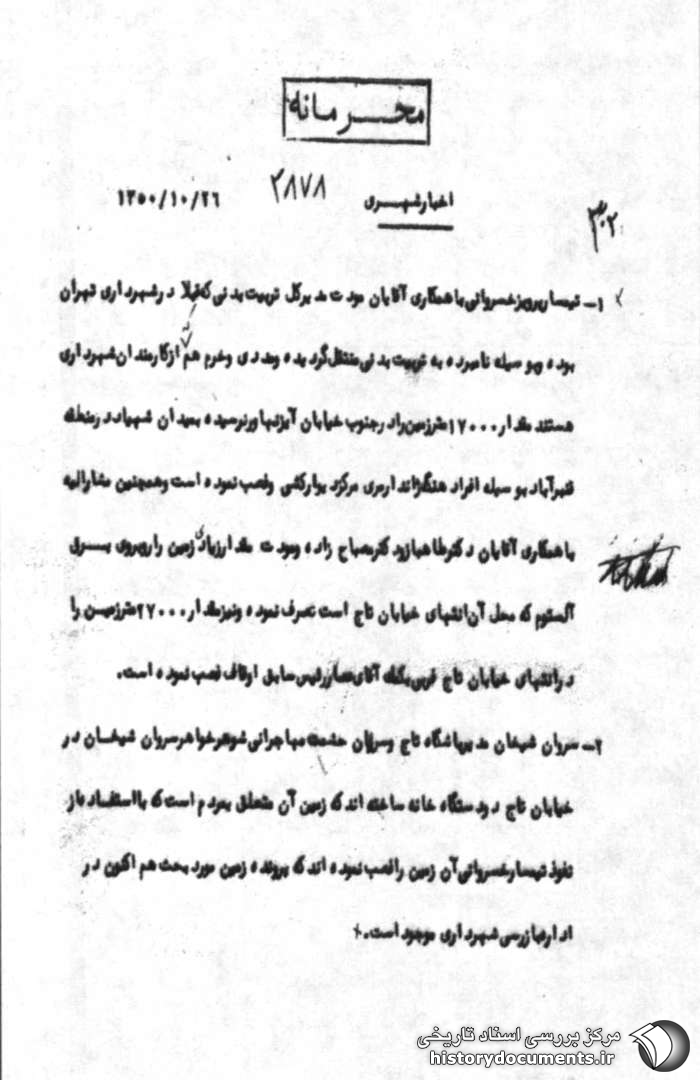 محرمانه
اخبار شهری ۲۸۷۸ ۱۳۵۰/۱۰/۲۶
۳۰۲
۱- تیمسار پرویز خسروانی با همکاری آقایان مودت مدیر کل تربیت بدنی که قبلا در شهرداری تهران
بوده و بوسیله نامبرده به تربیت بدنی منتقل گردیده و مددی و خرم هم از کارمندان شهرداری
هستند مقدار ۱۷۰۰۰ متر زمین را در جنوب خیابان آیزنهاور نرسیده بمیدان شهیاد در منطقه
قنبرآباد بوسیله افراد هنگ ژاندارمری مرکز دیوارکشی و غصب نموده است و همچنین مشارالیه
با همکاری آقایان دکتر طاهباز و دکتر مصباح زاده و مودت مقدار زیادی زمین را روبروی برق
آلستوم که محل آن انتهای خیابان تاج است تصرف نموده و نیز مقدار ۲۷۰۰۰ متر زمین را
در انتهای خیابان تاج قریب بکمک آقای عصار رئیس سابق اوقاف غصب نموده است.
۲- سروان شیخان مدیر باشگاه تاج و سروان حشمت مهاجرانی شوهر خواهر سروان شیخان در
خیابان تاج دو دستگاه خانه ساخته اند که زمین آن متعلق بمردم است که با استفاده از
نفوذ تیمسار خسروانی آن زمین را غصب نموده اند که پرونده زمین مورد بحث هم اکنون در
اداره بازرسی شهرداری موجود است.
مرکز بررسی اسناد تاریخی
historydocuments.ir